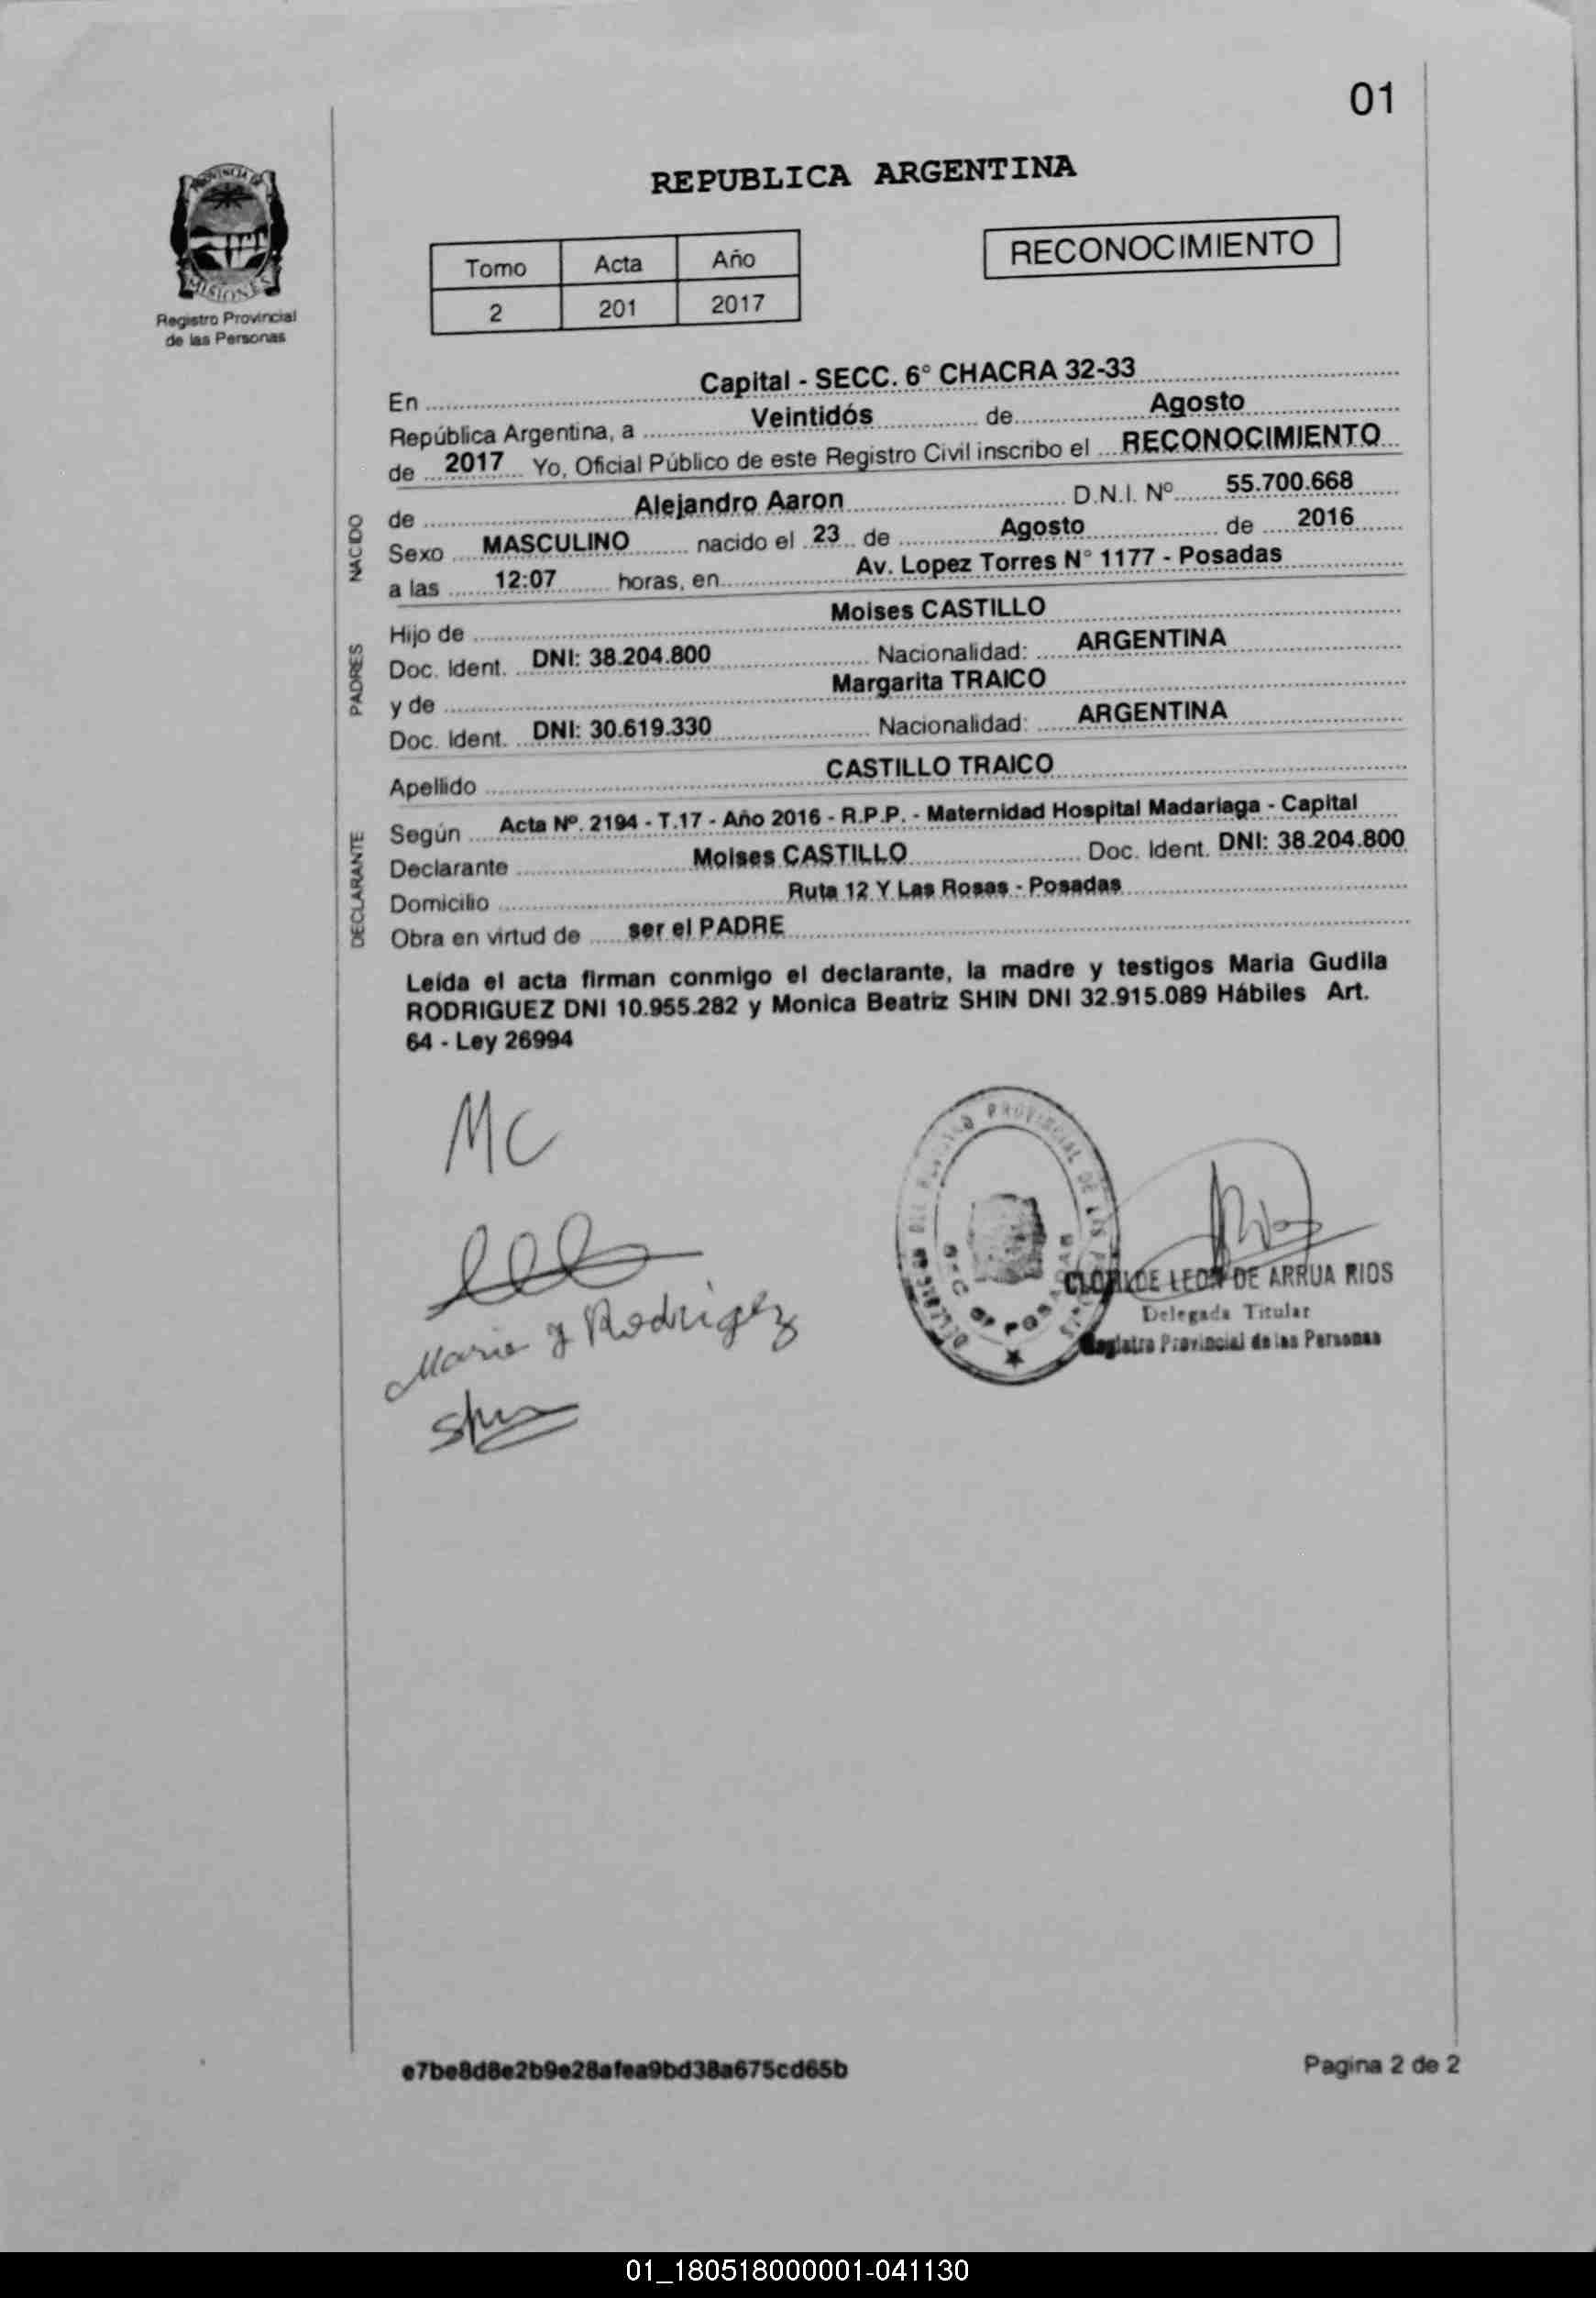 01
REPUBLICA ARGENTINA
PROVINCIA DE
MISIONES
Registro Provincial
de las Personas
Tomo Acta Año
2 201 2017
RECONOCIMIENTO
En Capital - SECC. 6° CHACRA 32-33
República Argentina, a Veintidós de Agosto
de 2017 Yo, Oficial Público de este Registro Civil inscribo el RECONOCIMIENTO
NACIDO
de Alejandro Aaron D.N.I. Nº 55.700.668
Sexo MASCULINO nacido el 23 de Agosto de 2016
a las 12:07 horas, en Av. Lopez Torres N° 1177 - Posadas
PADRES
Hijo de Moises CASTILLO
Doc. Ident. DNI: 38.204.800 Nacionalidad: ARGENTINA
y de Margarita TRAICO
Doc. Ident. DNI: 30.619.330 Nacionalidad: ARGENTINA
Apellido CASTILLO TRAICO
DECLARANTE
Según Acta Nº. 2194 - T.17 - Año 2016 - R.P.P. - Maternidad Hospital Madariaga - Capital
Declarante Moises CASTILLO Doc. Ident. DNI: 38.204.800
Domicilio Ruta 12 Y Las Rosas - Posadas
Obra en virtud de ser el PADRE
Leida el acta firman conmigo el declarante, la madre y testigos Maria Gudila
RODRIGUEZ DNI 10.955.282 y Monica Beatriz SHIN DNI 32.915.089 Hábiles Art.
64 - Ley 26994
MC
Maria g Rodrigez
Shin
PROVINCIAL DE LAS
CLOTILDE LEON DE ARRUA RIOS
Delegada Titular
Registro Provincial de las Personas
e7be8d8e2b9e28afea9bd38a675cd65b
Pagina 2 de 2
01_180518000001-041130